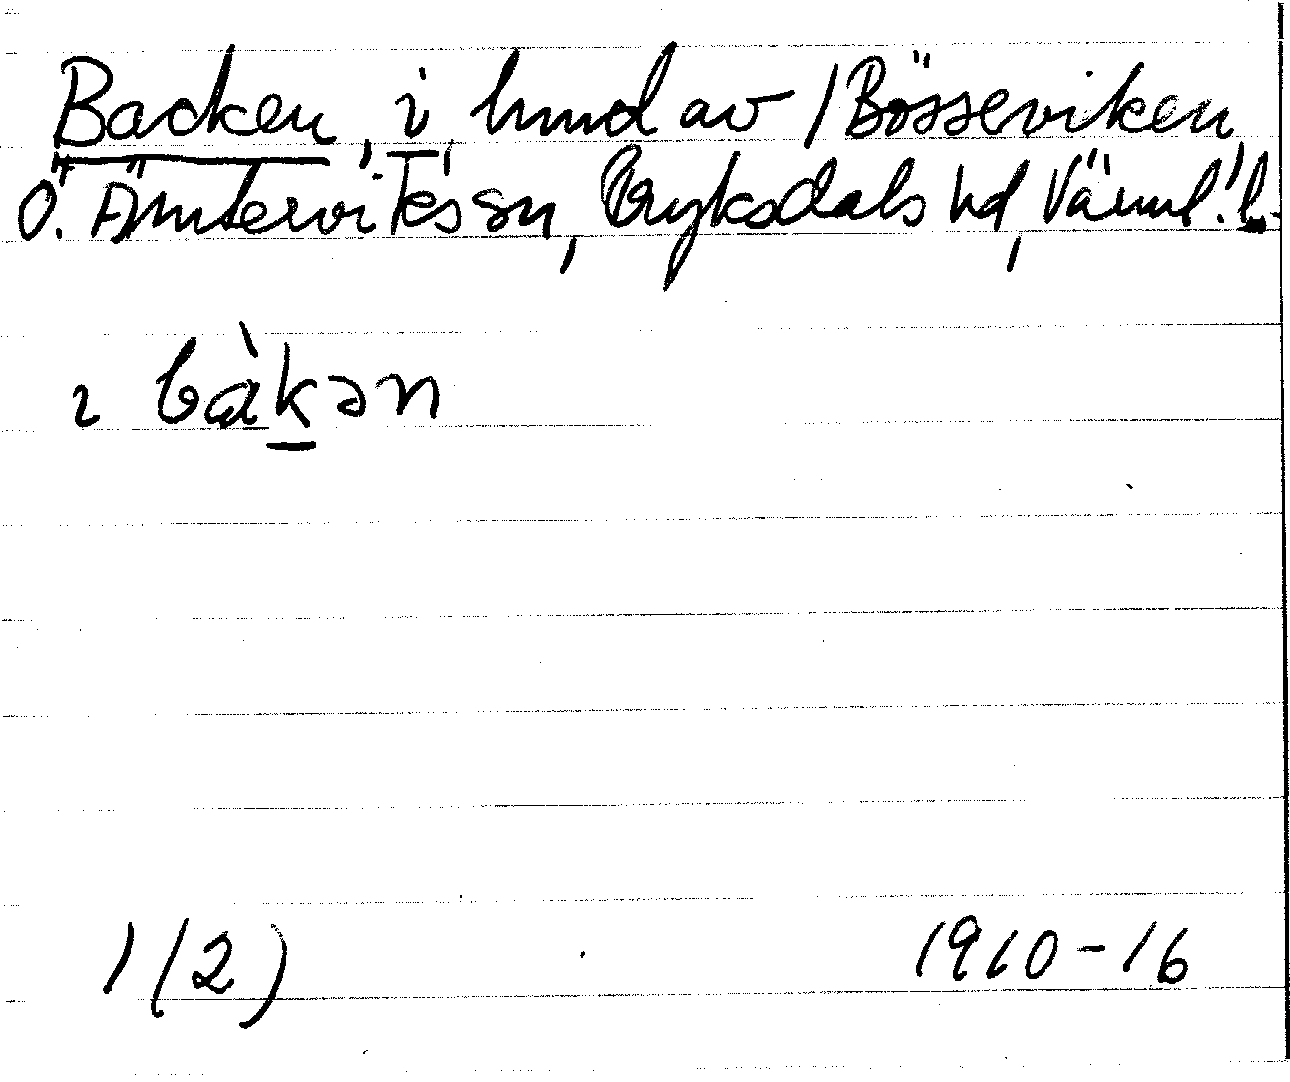 Backen, i hmd av 1 Bösseviken,
Ö. Ämterviks sn, Fryksdals hd, Värml. l.
ı bàkən
1 (2) 1910-16